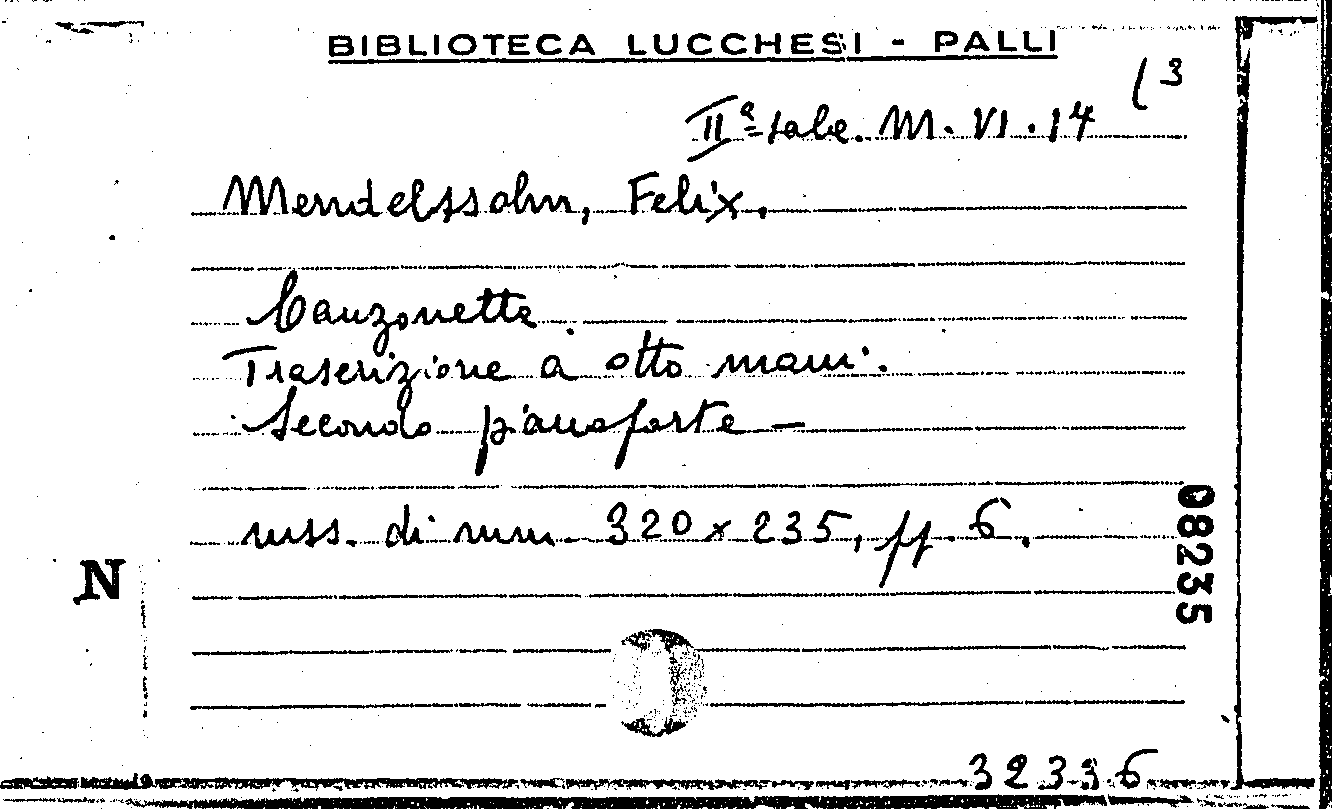 BIBLIOTECA LUCCHESI - PALLI
(3
IIª Sala. M. VI. 14
Mendelssohn, Felix.
Canzonetta.
Trascrizione a otto mani.
Secondo pianoforte —
mss. di mm. 320 x 235, ff. 6.
08235
N
32336